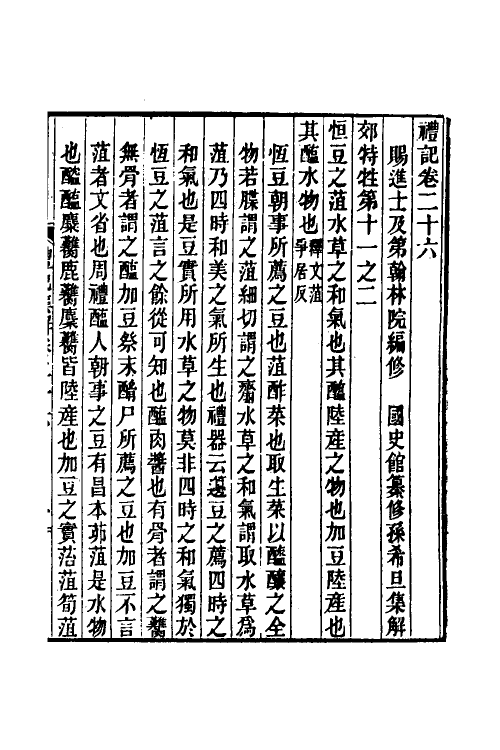 禮記卷二十六
賜進士及第翰林院編修　國史館纂修孫希旦集解
郊特牲第十一之二
恒豆之菹水草之和氣也其醢陸産之物也加豆陸産也
其醢水物也釋文菹爭居反
恆豆朝事所薦之豆也菹酢菜也取生菜以醯釀之全
物若䐑謂之菹細切謂之齏水草之和氣謂取水草爲
菹乃四時和美之氣所生也禮器云籩豆之薦四時之
和氣也是豆實所用水草之物莫非四時之和氣獨於
恆豆之菹言之餘從可知也醢肉醬也有骨者謂之臡
無骨者謂之醢加豆祭末酳尸所薦之豆也加豆不言
菹者文省也周禮醢人朝事之豆有昌本茆菹是水物
也醓醢麋臡鹿臡麇臡皆陸産也加豆之實菭菹筍菹